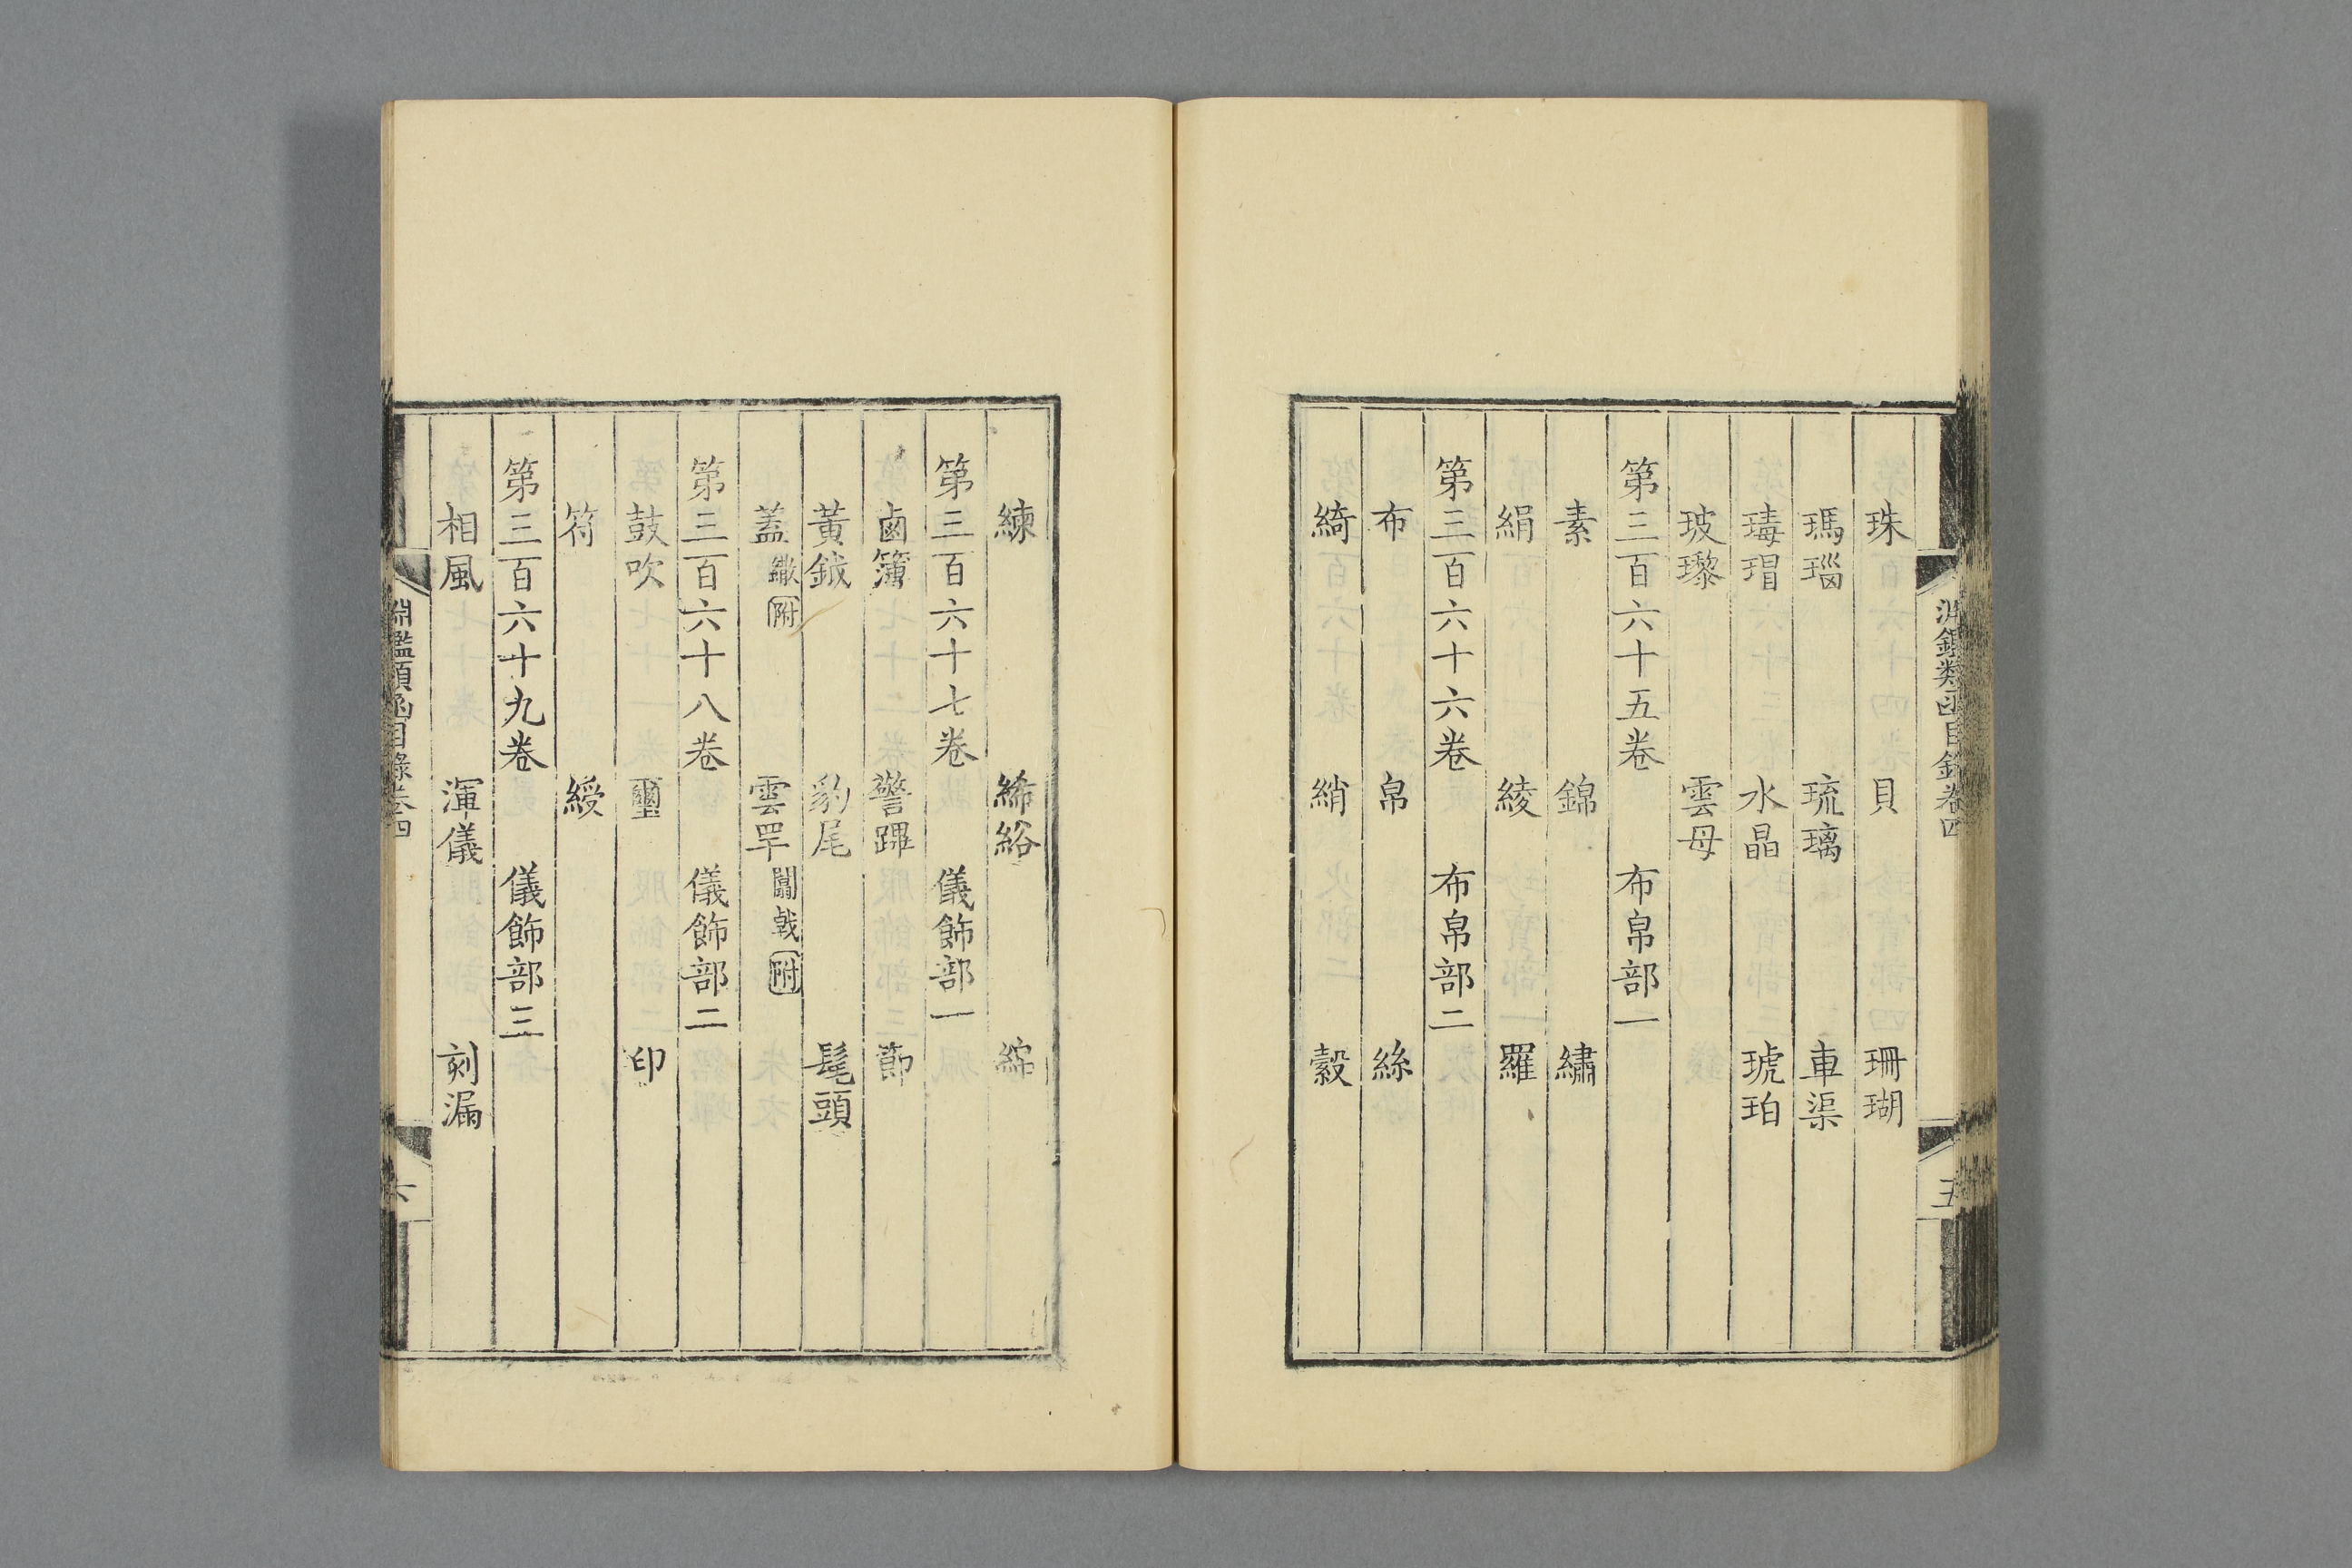 珠 貝 珊瑚
瑪瑙 琉璃 車渠
瑇瑁 水晶 琥珀
玻瓈 雲母
第三百六十五卷 布帛部一
素 錦 繡
絹 綾 羅
第三百六十六卷 布帛部二
布 帛 絲
綺 綃 縠
練 絺綌
第三百六十七卷 儀飾部一
鹵簿 警蹕 節
黃鉞 豹尾 髦頭
蓋 繖附 雲罕 闟戟附
第三百六十八卷 儀飾部二
鼓吹 璽 印
符 綬
第三百六十九卷 儀飾部三
相風 渾儀 刻漏
淵鑑類函目錄卷四
六